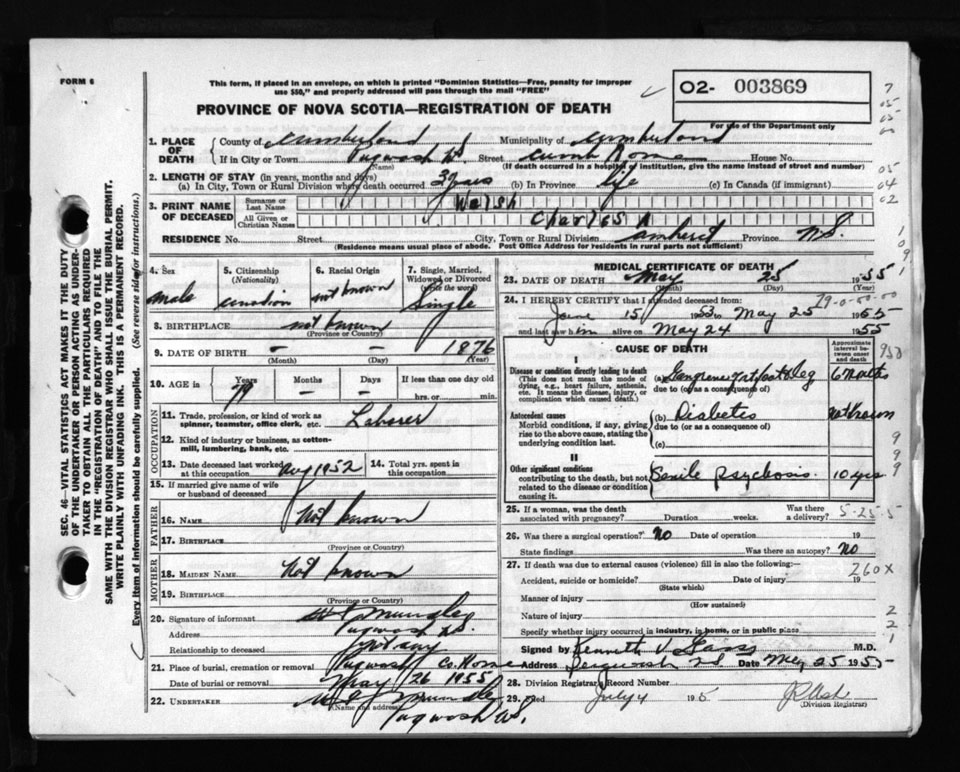 FORM 6
This form, if placed in an envelope, on which is printed "Dominion Statistics—Free, penalty for improper
use $50," and properly addressed will pass through the mail "FREE"
PROVINCE OF NOVA SCOTIA—REGISTRATION OF DEATH
O2- 003869
For use of the Department only
1. PLACE OF DEATH County of Cumberland Municipality of Cumberland
If in City or Town Pugwash N.S. Street House No.
(Name) (If death occurred in a hospital or institution, give the name instead of street and number)
2. LENGTH OF STAY (in years, months and days)
(a) In City, Town or Rural Division where death occurred 3 years (b) In Province life (c) In Canada (if immigrant)
3. PRINT NAME OF DECEASED Surname or Last Name Welsh
All Given or Christian Names Charles
RESIDENCE No. Street City, Town or Rural Division Amherst Province N.S.
(Residence means usual place of abode. Post Office Address for residents in rural parts not sufficient)
4. Sex male
5. Citizenship (Nationality)
6. Racial Origin not known
7. Single, Married, Widowed or Divorced (write the word) Single
8. BIRTHPLACE not known
(Province or Country)
9. DATE OF BIRTH — — 1876
(Month) (Day) (Year)
10. AGE in Years 79 Months — Days — If less than one day old
hrs. or min.
OCCUPATION
11. Trade, profession or kind of work as spinner, teamster, office clerk, etc. Laborer
12. Kind of industry or business, as cotton-mill, lumbering, bank, etc.
13. Date deceased last worked at this occupation Aug 1952
14. Total yrs. spent in this occupation
15. If married give name of wife or husband of deceased
FATHER
16. NAME Not known
17. BIRTHPLACE
(Province or Country)
MOTHER
18. MAIDEN NAME Not known
19. BIRTHPLACE
(Province or Country)
20. Signature of informant
Address Pugwash N.S.
Relationship to deceased not any
21. Place of burial, cremation or removal Pugwash Co. Home
Date of burial or removal May 26 1955
22. UNDERTAKER
(Name and address)
Pugwash N.S.
MEDICAL CERTIFICATE OF DEATH
23. DATE OF DEATH May 25 1955
(Month) (Day)
24. I HEREBY CERTIFY that I attended deceased from:
June 15 1953 to May 25 1955
and last saw him alive on May 24 1955
CAUSE OF DEATH
Approximate interval between onset and death
I
Disease or condition directly leading to death
(This does not mean the mode of dying, e.g., heart failure, asthenia, etc. It means the disease, injury, or complication which caused death.)
(a) Gangrene 6 months
due to (or as a consequence of)
Antecedent causes
Morbid conditions, if any, giving rise to the above cause, stating the underlying condition last.
(b) Diabetes not known
due to (or as a consequence of)
(c)
II
Other significant conditions
contributing to the death, but not related to the disease or condition causing it.
Senile Psychosis. 10 yrs
25. If a woman, was the death associated with pregnancy? Duration weeks. Was there a delivery?
5-25-5
26. Was there a surgical operation? No Date of operation 19
State findings Was there an autopsy? No
27. If death was due to external causes (violence) fill in also the following:
260X
Accident, suicide or homicide? Date of injury 19
(State which)
Manner of injury
(How sustained)
Nature of injury
Specify whether injury occurred in industry, in home, or in public place
Signed by Kenneth V Gass M.D.
Address N.S. Date May 25 1955
28. Division Registrar's Record Number
29. Filed July 4 195
(Division Registrar)
SEC. 46—VITAL STATISTICS ACT MAKES IT THE DUTY
OF THE UNDERTAKER OR PERSON ACTING AS UNDER-
TAKER TO OBTAIN ALL THE PARTICULARS REQUIRED
IN THE "REGISTRATION OF DEATH" AND TO FILE THE
SAME WITH THE DIVISION REGISTRAR WHO SHALL ISSUE THE BURIAL PERMIT.
WRITE PLAINLY WITH UNFADING INK. THIS IS A PERMANENT RECORD.
Every item of information should be carefully supplied. (See reverse side for instructions.)